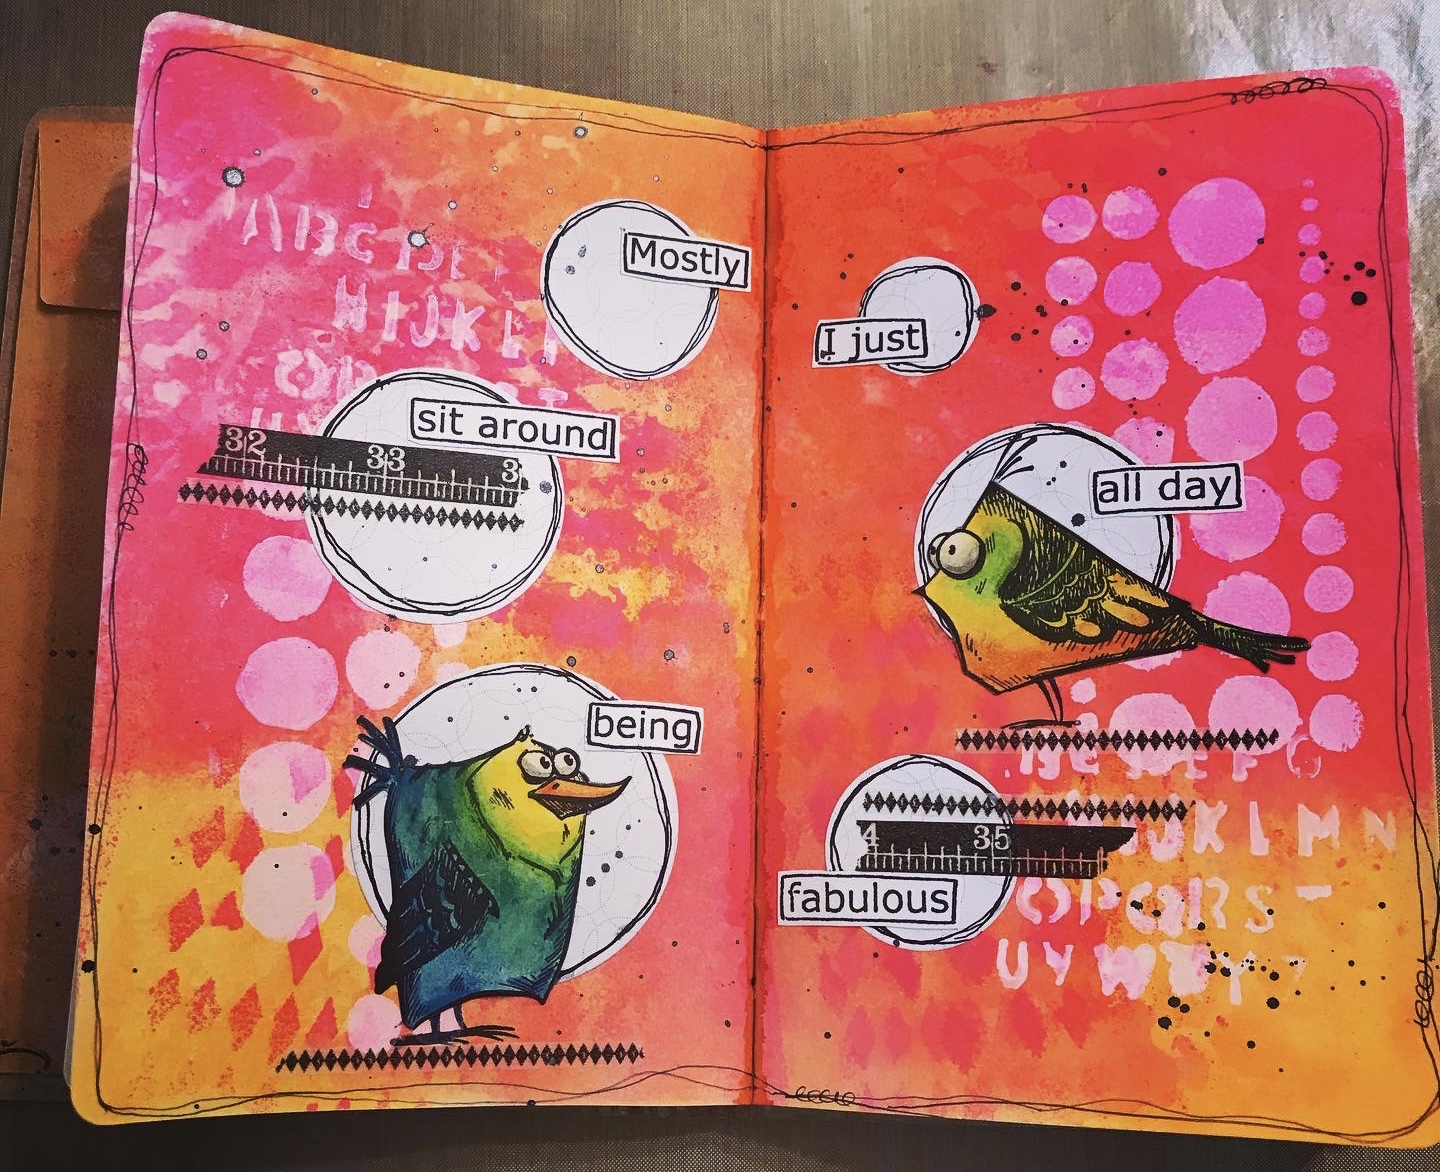 Mostly
I just
ABCDE
HIJKL
sit around
32 33 3
all day
being
4 35
JKLMN
fabulous
OPQRST
UVWXYZ